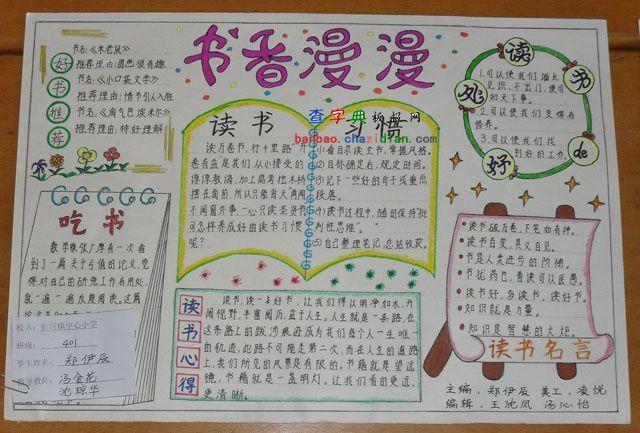 书香漫漫
好书推荐
书名:《木老鼠》
推荐理由:图画很有趣
书名:《小口袋文学》
推荐理由:情节引人入胜
书名:《淘气包埃米尔》
推荐理由:特好理解
查字典
banbao.chazidian.com
读书习惯
读万卷书,行千里路
卷有益是我们从小接受的
不闻窗外事,一心只读圣贤书
可怎样养成好的读书习惯
呢?
(1)看目录读主书,掌握风格。
(2)目标确定后,规定时间。
(3)记下一些好的句子或重点
段落。
(4)读书过程中,随时保持“批
判性思维”。
(5)自己整理笔记,总结收获。
读书de好处
1.可以使我们增长
见识,不出门,便可
知天下事。
2.可以使我们变得有
修养。
3.可以使我们找
到好的工作。
吃书
数学家张广厚有一次看
到了一篇关于亏值的论文,觉
得对自己的研究工作有用处,
就一遍一遍反复阅读。这篇
校名:
中心小学
班级:
401
学生姓名:
郑伊辰
指导教师:
冯金花
沈琼华
读书心得
读书,读一本好书,让我们得以明净如水,开
阔视野,丰富阅历,益于人生。人生就是一条路,在
这条路上的跋涉痕迹成为我们每个人一生唯一
的轨迹,此路不可能走第二次,而在人生的道路
上,我们所见的风景是有限的。书籍就是望远
镜,书籍就是一盏明灯,让我们看的更远、
更清晰。
读书破万卷,下笔如有神。
读书百变,其义自见。
书是人类进步的阶梯。
书犹药也,善读可以医愚。
读书好,多读书,读好书。
知识就是力量。
知识是智慧的火炬。
读书名言
主编:郑伊辰 美工:凌悦
编辑:王沈凤 汤沁怡